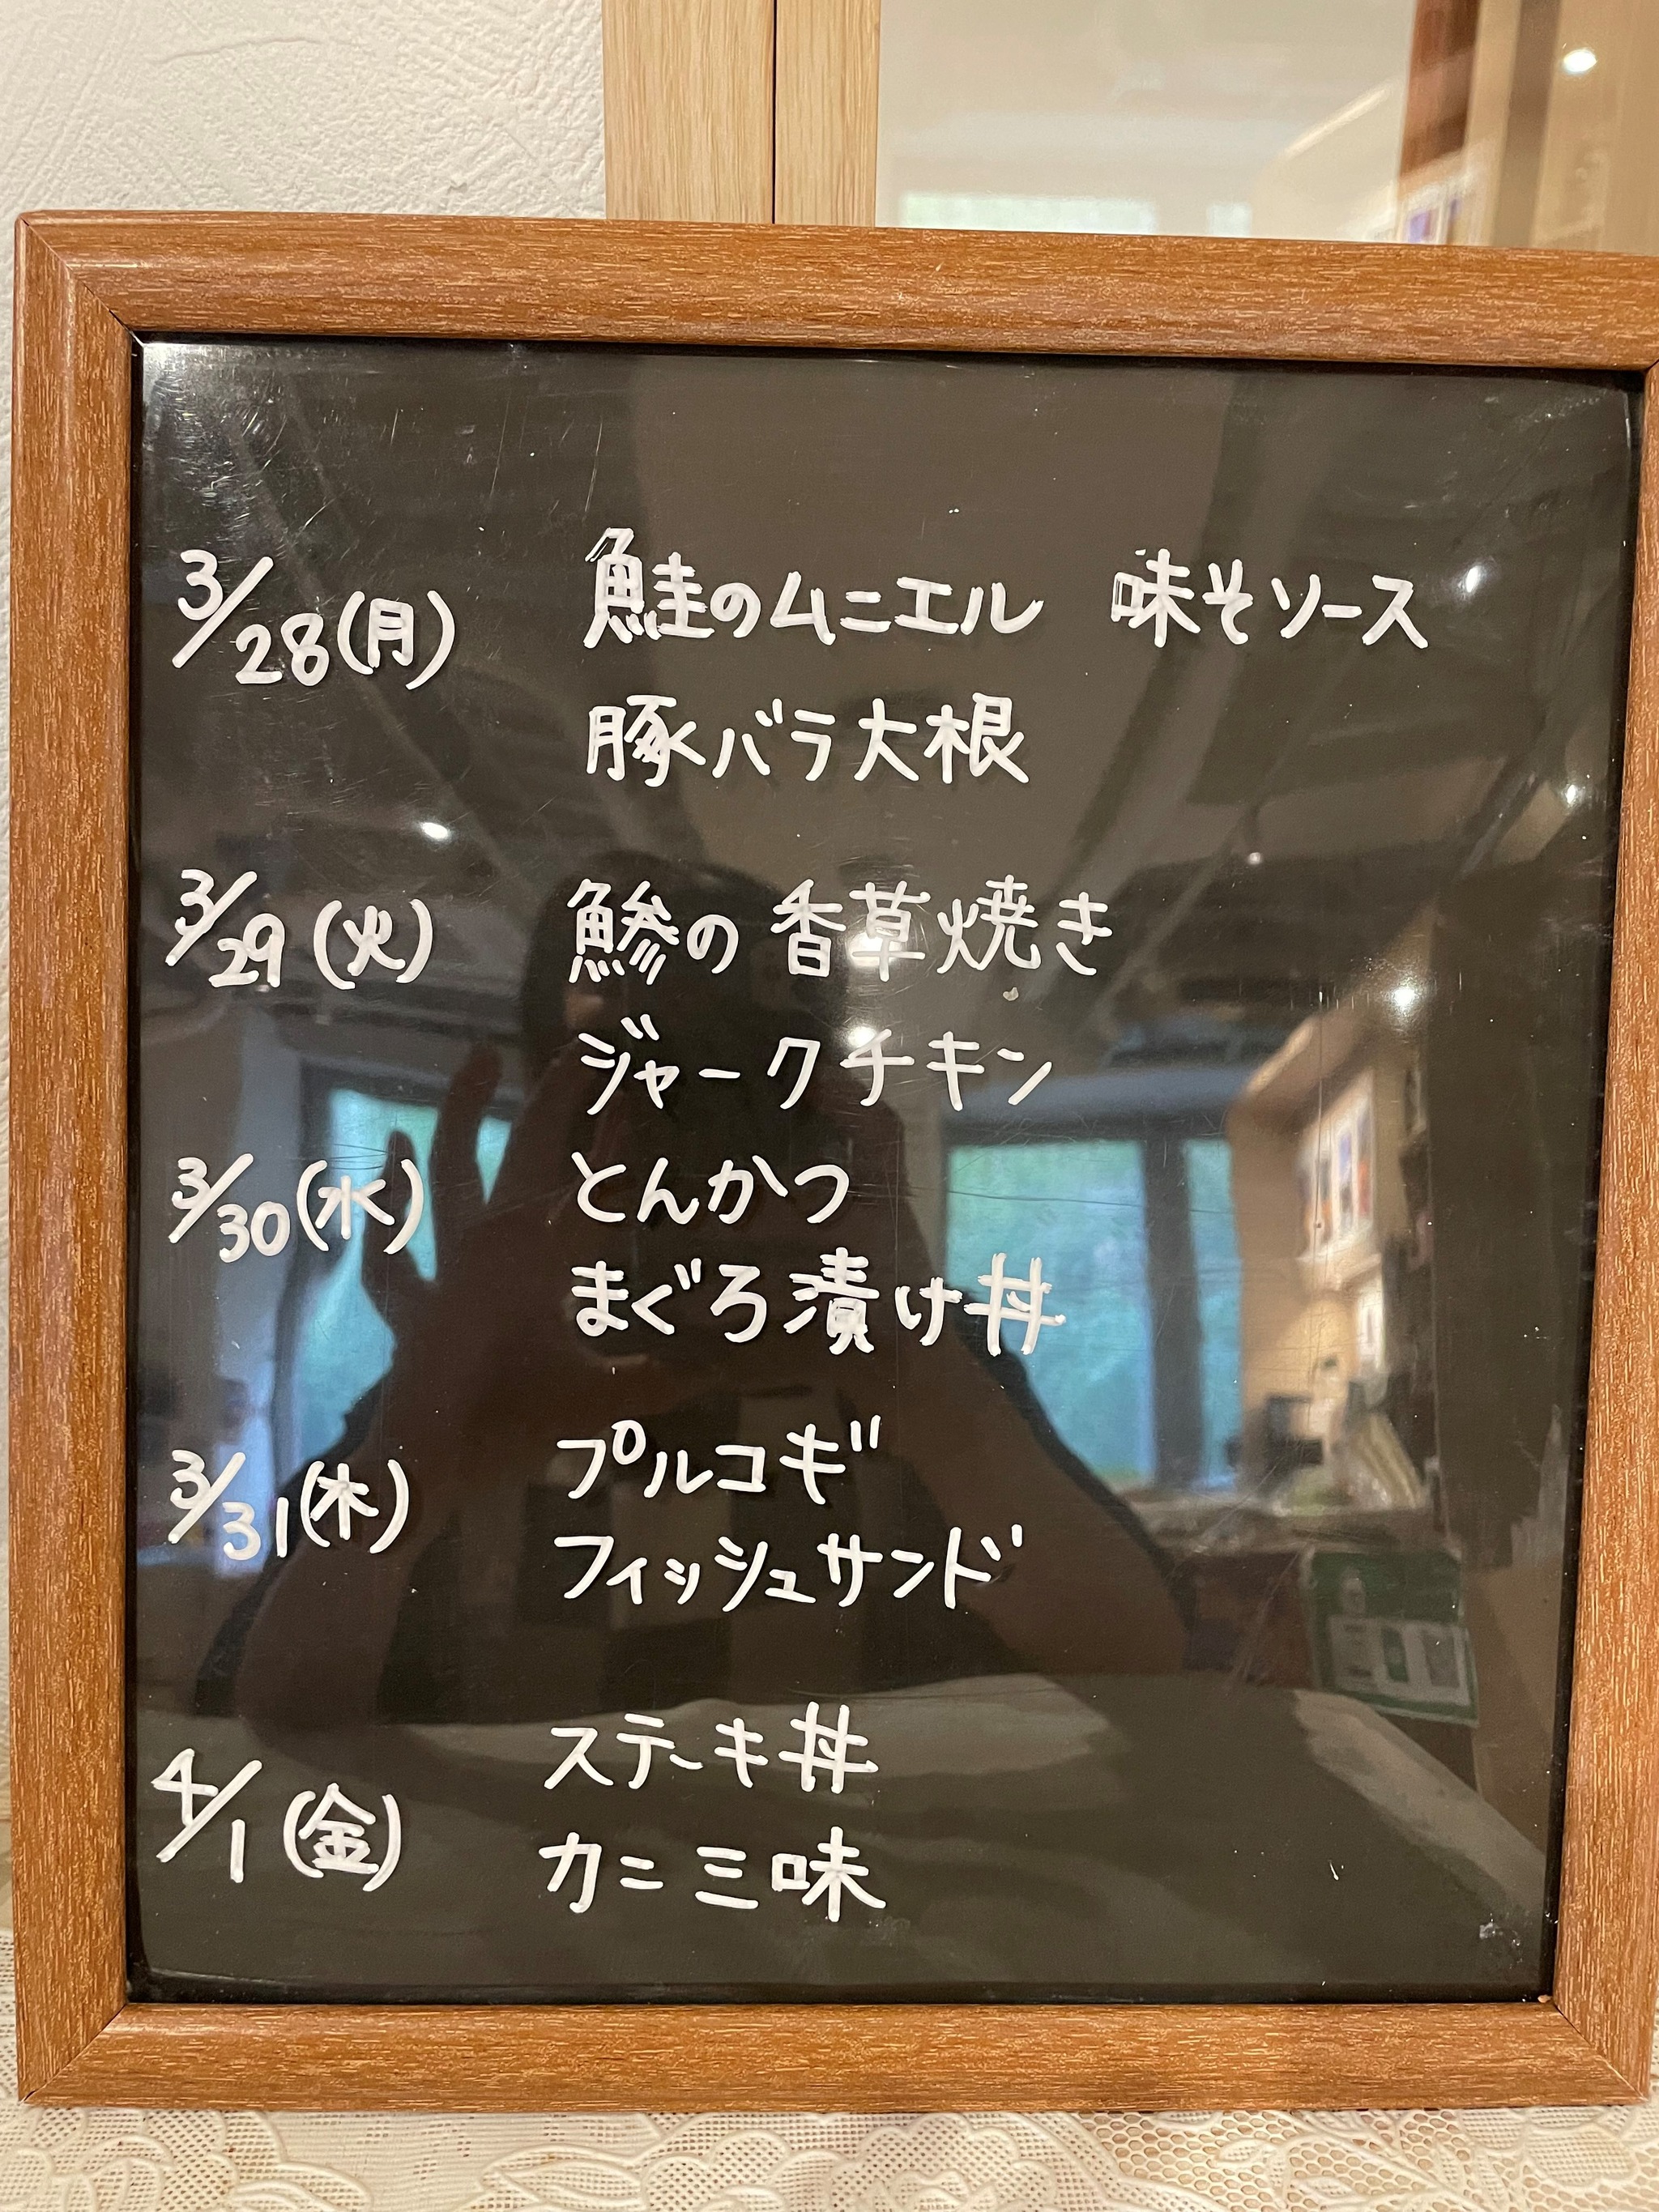 3/28(月) 鮭のムニエル 味そソース
豚バラ大根
3/29(火) 鯵の香草焼き
ジャークチキン
3/30(水) とんかつ
まぐろ漬け丼
3/31(木) プルコギ
フィッシュサンド
ステーキ丼
4/1(金)
カニ三味